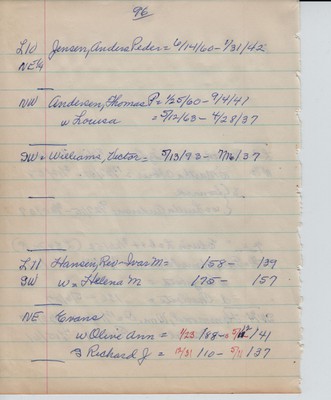 96
L10 Jensen, Anders Peder = 6/14/60 - 1/31/42
NE 1/4
NW Andersen, Thomas P = 1/25/60 - 9/4/41
w Lowisa = 5/12/63 - 4/28/37
SW = Williams, Victor = 5/13/93 - 7/16/37
L11 Hansen, Rev - Ivar M = 158 - 139
SW w = Helena M 175 - 157
NE Evans
w Olive Ann = 1/23/88 - 5/ /41
S Richard J = 12/31/10 - 5/1/37